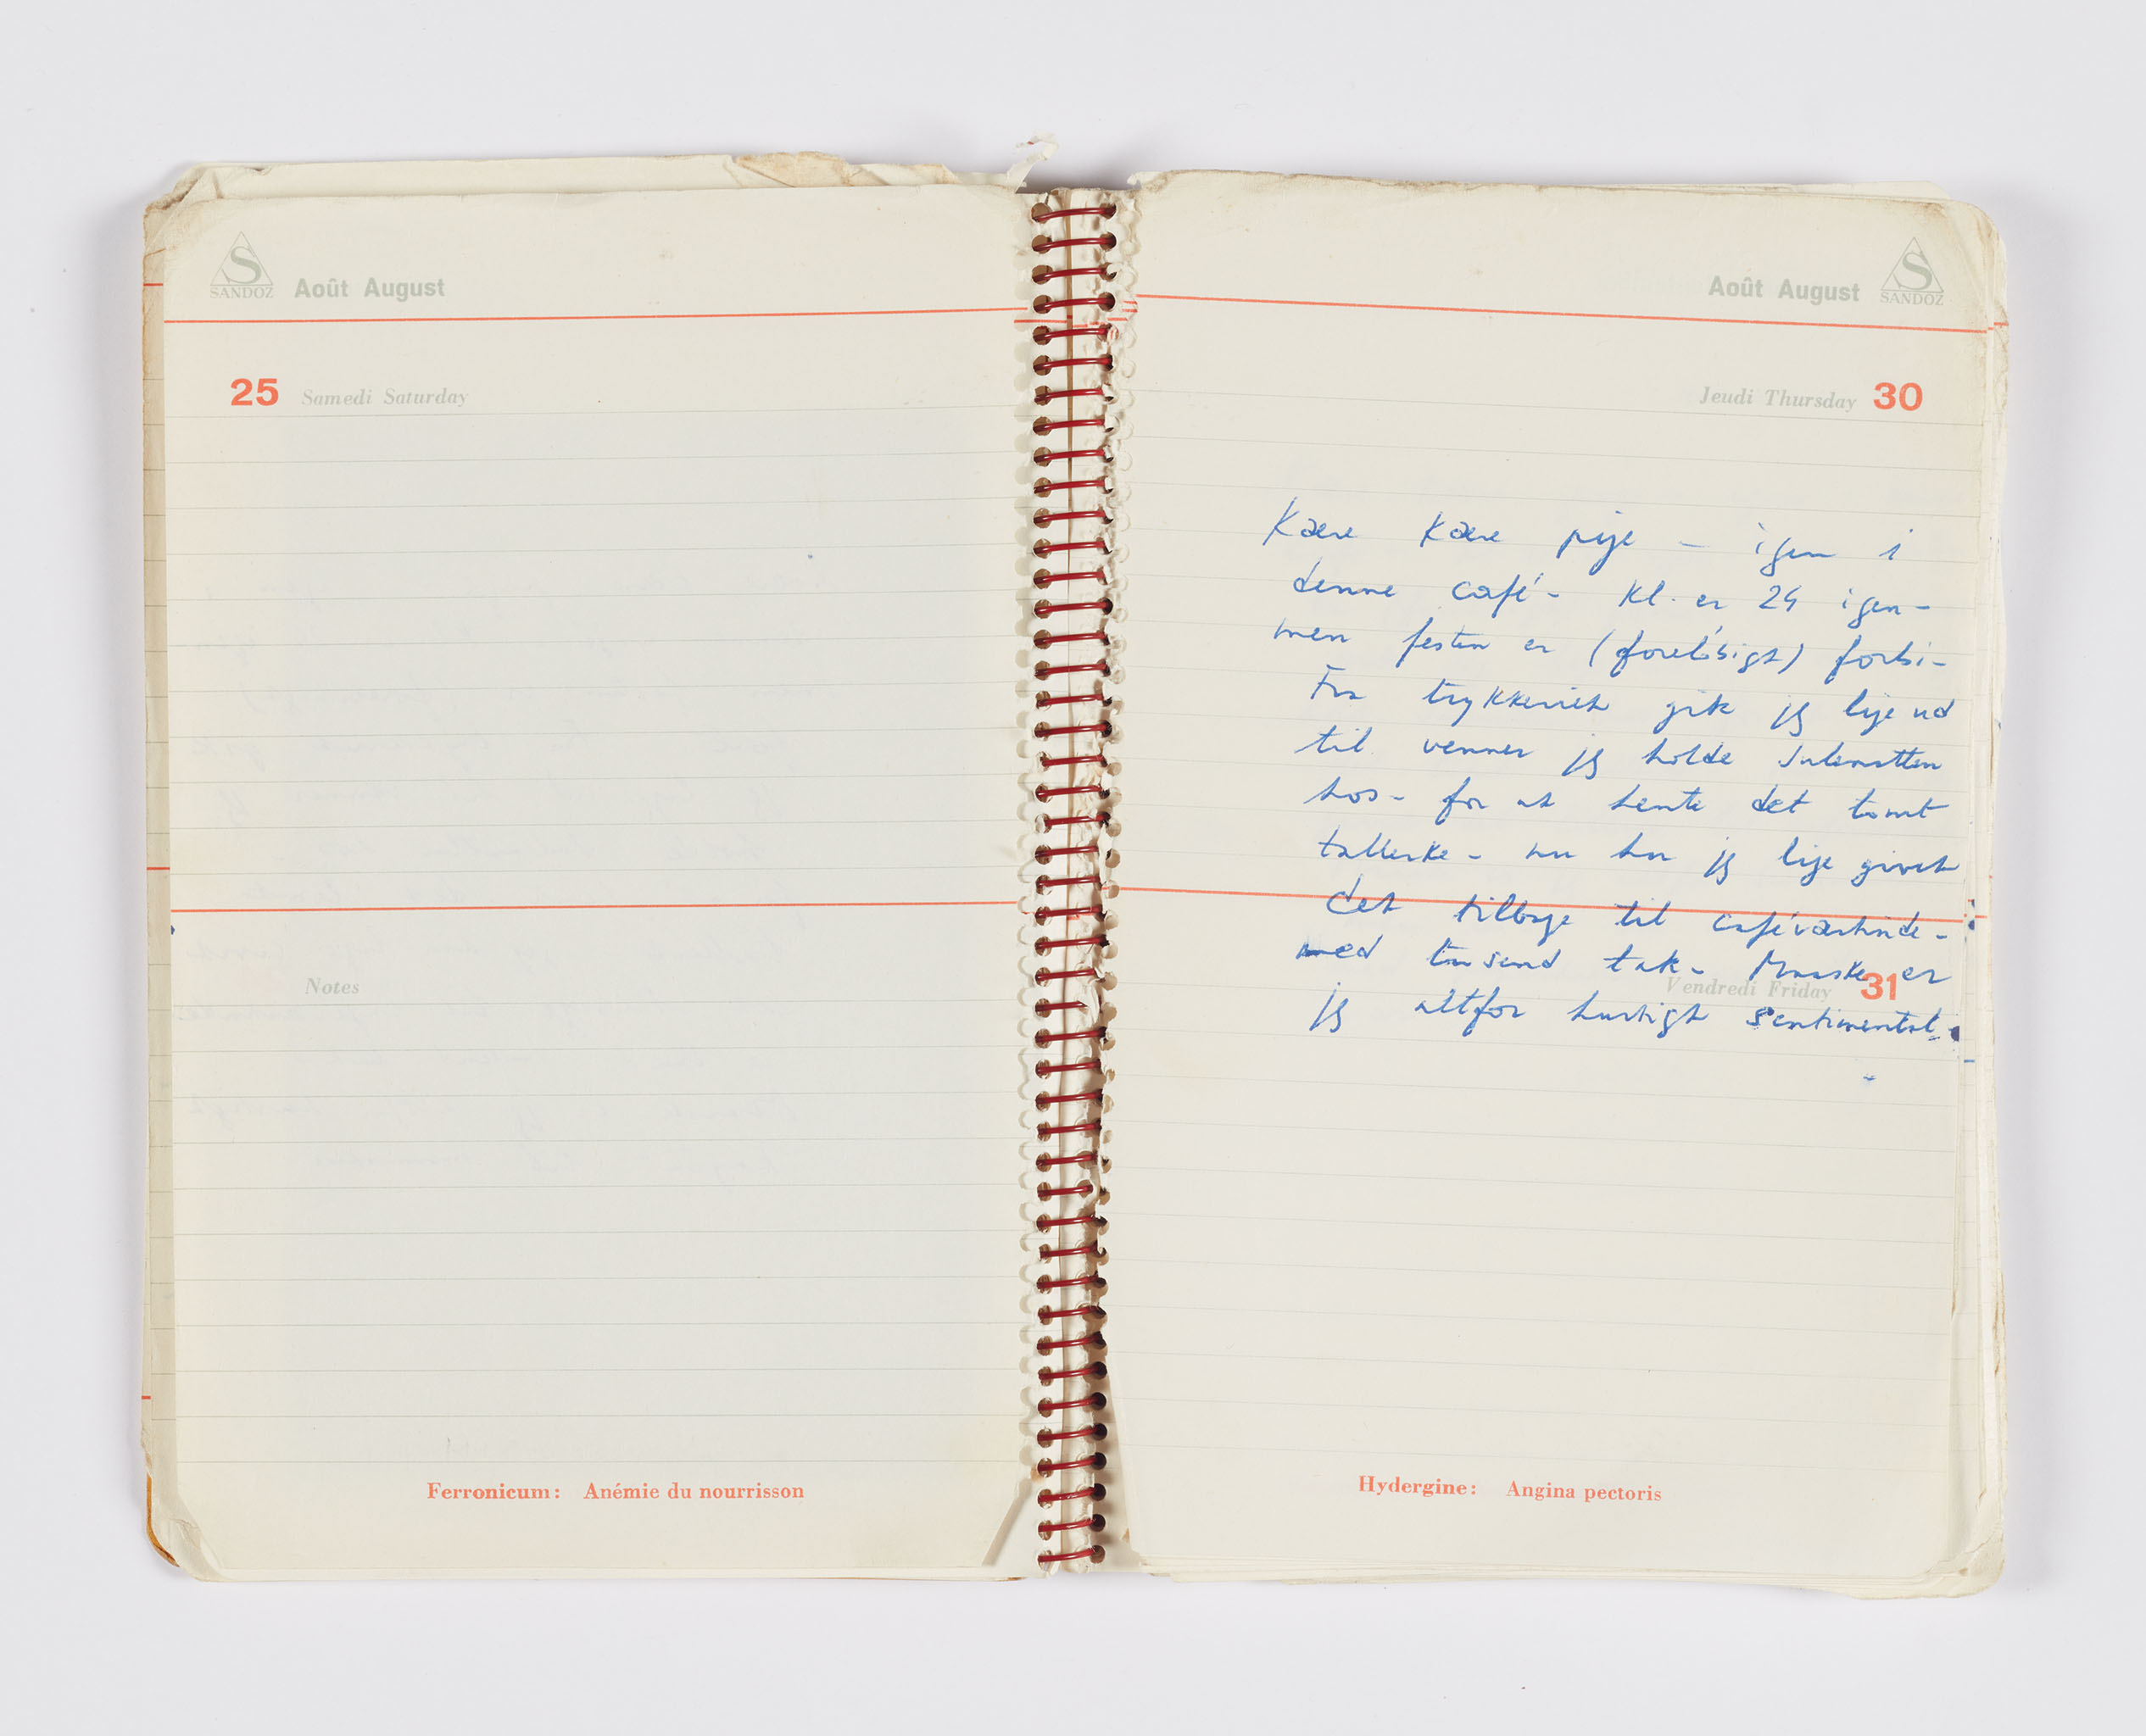 S
SANDOZ
Août August
25 Samedi Saturday
Notes
Ferronicum: Anémie du nourrisson
Août August
S
SANDOZ
Jeudi Thursday 30
Kære Kære pije – igen i
denne café – Kl. er 24 igen –
men festen er (foreløsigt) forbi –
Fra trykkeriet gik jeg lije ud
til venner jeg holde Julenatten
hos – for at hente det tomt
tallerke – nu har jeg lije givet
det tilbage til caféværtinde –
med tusend tak – Maaske er
Vendredi Friday 31
jeg altfor hurtigt sentimental –
Hydergine: Angina pectoris